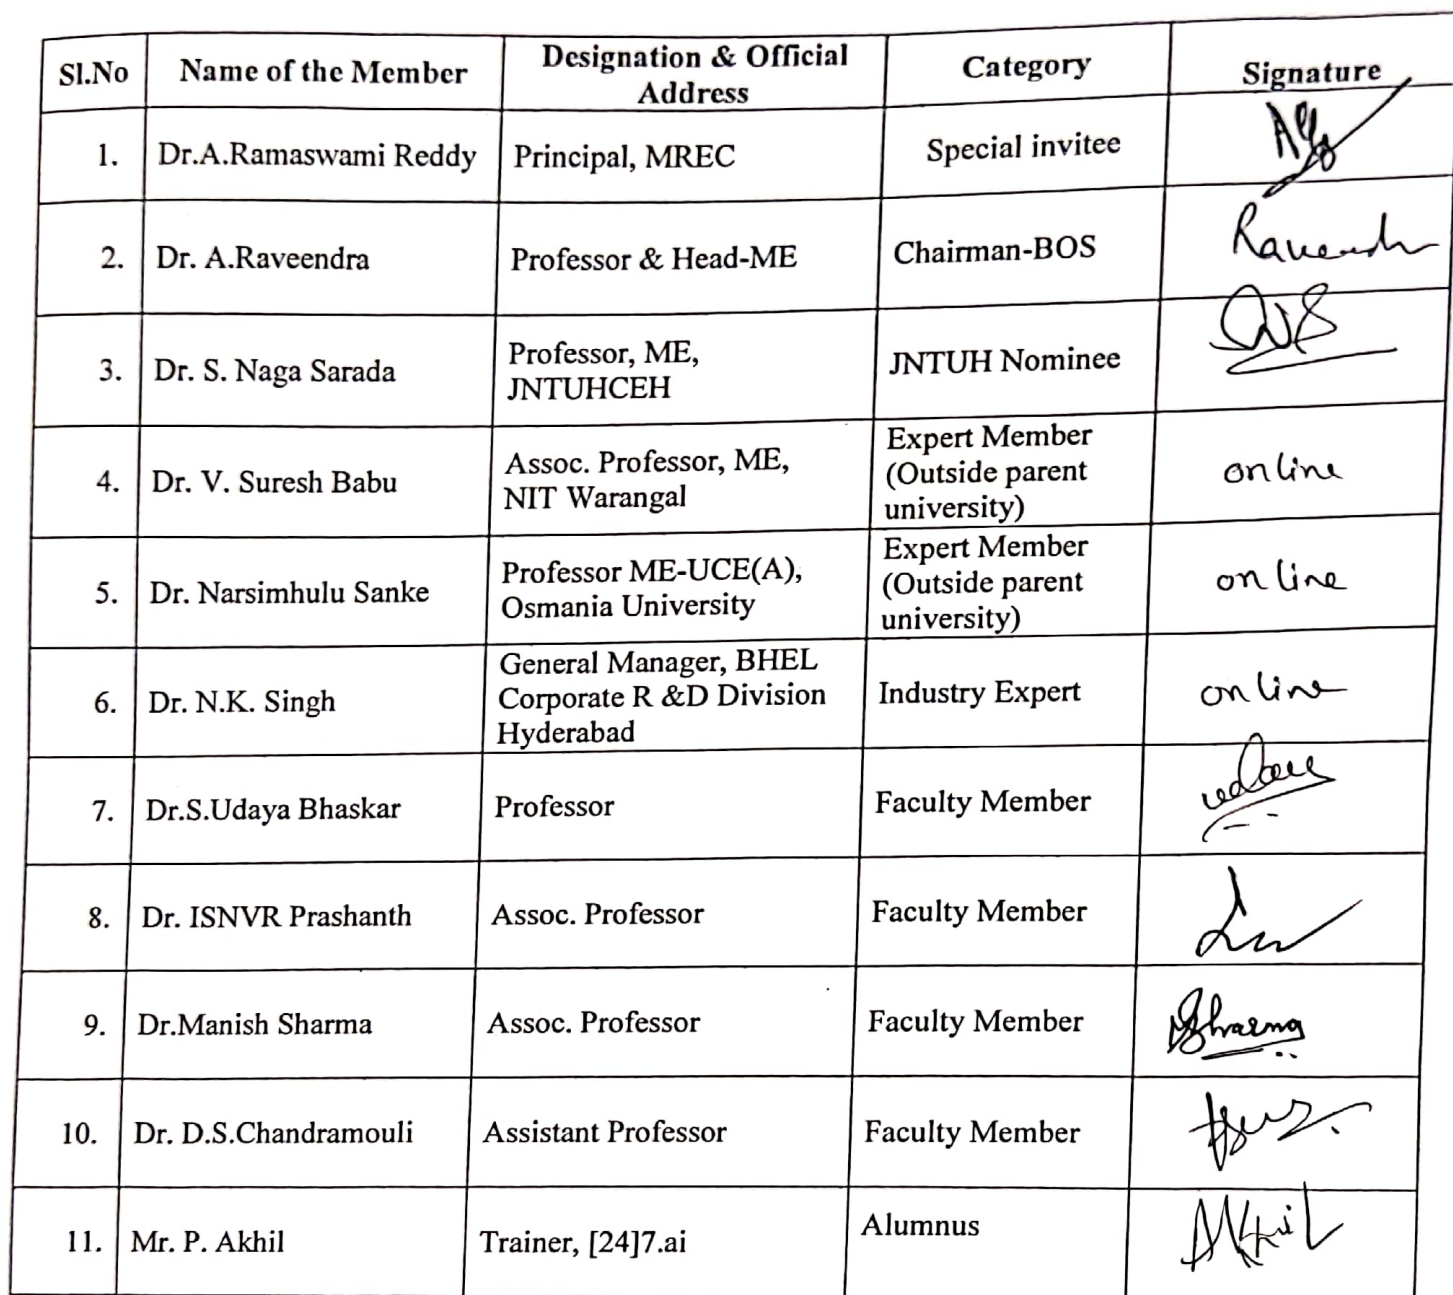 Sl.No Name of the Member Designation & Official Address Category Signature
1. Dr.A.Ramaswami Reddy Principal, MREC Special invitee
2. Dr. A.Raveendra Professor & Head-ME Chairman-BOS
3. Dr. S. Naga Sarada Professor, ME, JNTUHCEH JNTUH Nominee
4. Dr. V. Suresh Babu Assoc. Professor, ME, NIT Warangal Expert Member (Outside parent university) online
5. Dr. Narsimhulu Sanke Professor ME-UCE(A), Osmania University Expert Member (Outside parent university) online
6. Dr. N.K. Singh General Manager, BHEL Corporate R &D Division Hyderabad Industry Expert online
7. Dr.S.Udaya Bhaskar Professor Faculty Member
8. Dr. ISNVR Prashanth Assoc. Professor Faculty Member
9. Dr.Manish Sharma Assoc. Professor Faculty Member
10. Dr. D.S.Chandramouli Assistant Professor Faculty Member
11. Mr. P. Akhil Trainer, [24]7.ai Alumnus Akhil